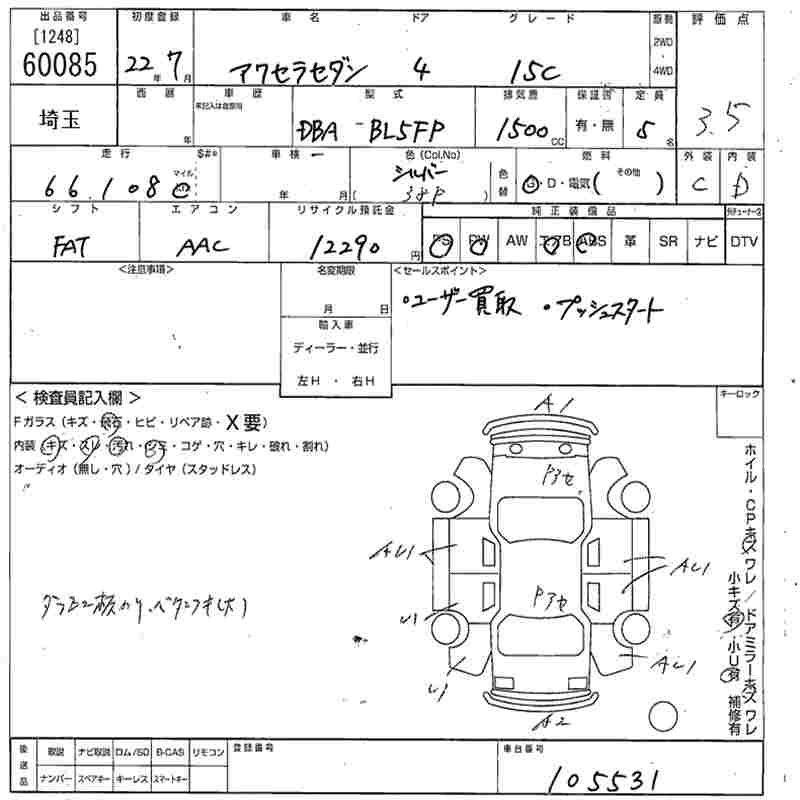 出品番号 初度登録 車名 ドア グレード 原動 評価点
[1248]
60085 22年 7月 アクセラセダン 4 15C 2WD・4WD
西暦 車歴 型式 排気量 保証書 定員
埼玉 年 未記入は自家用 DBA-BL5FP 1500cc 有・無 5名 3.5
走行 $#* 車検 色(Col.No) 燃料 外装 内装
66,108 マイル 年 月 シルバー ( 38P ) 色替 G・D・電気( その他 ) C D
シフト エアコン リサイクル預託金 純正装備品
FAT AAC 12290円 PS PW AW エアB ABS 革 SR ナビ DTV
<注意事項> 名変期限 <セールスポイント>
月 日 ・ユーザー買取 ・プッシュスタート
輸入車
ディーラー・並行
左H ・ 右H
<検査員記入欄> キーロック
Fガラス(キズ・飛石・ヒビ・リペア跡・X要)
内装(キズ・スレ・汚れ・シミ・コゲ・穴・キレ・破れ・割れ)
オーディオ(無し・穴)/タイヤ(スタッドレス)
A1
Pアセ
AU1 AU1
Pアセ
U1
AU1
U1
A2
ホイル・CPキズワレ/ドアミラーキズワレ
小キズ有・小U有 補修有
後送品 取説 ナビ取説 ロム/SD B-CAS リモコン 登録番号 車台番号
ナンバー スペアキー キーレス スマートキー 105531